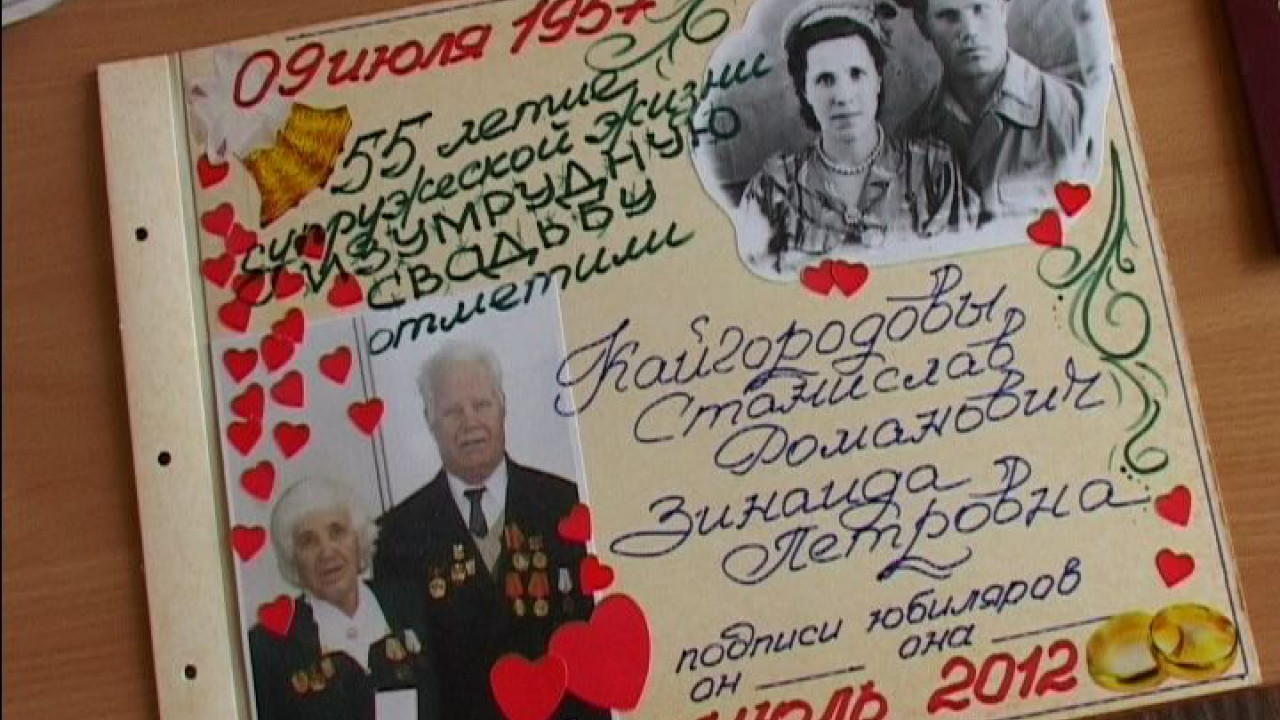 09 июля 1957
55 летие
супружеской жизни
ИЗУМРУДНУЮ
СВАДЬБУ
отметили
Кайгородовы
Станислав
Романович
Зинаида
Петровна
подписи юбиляров
он она
июль 2012